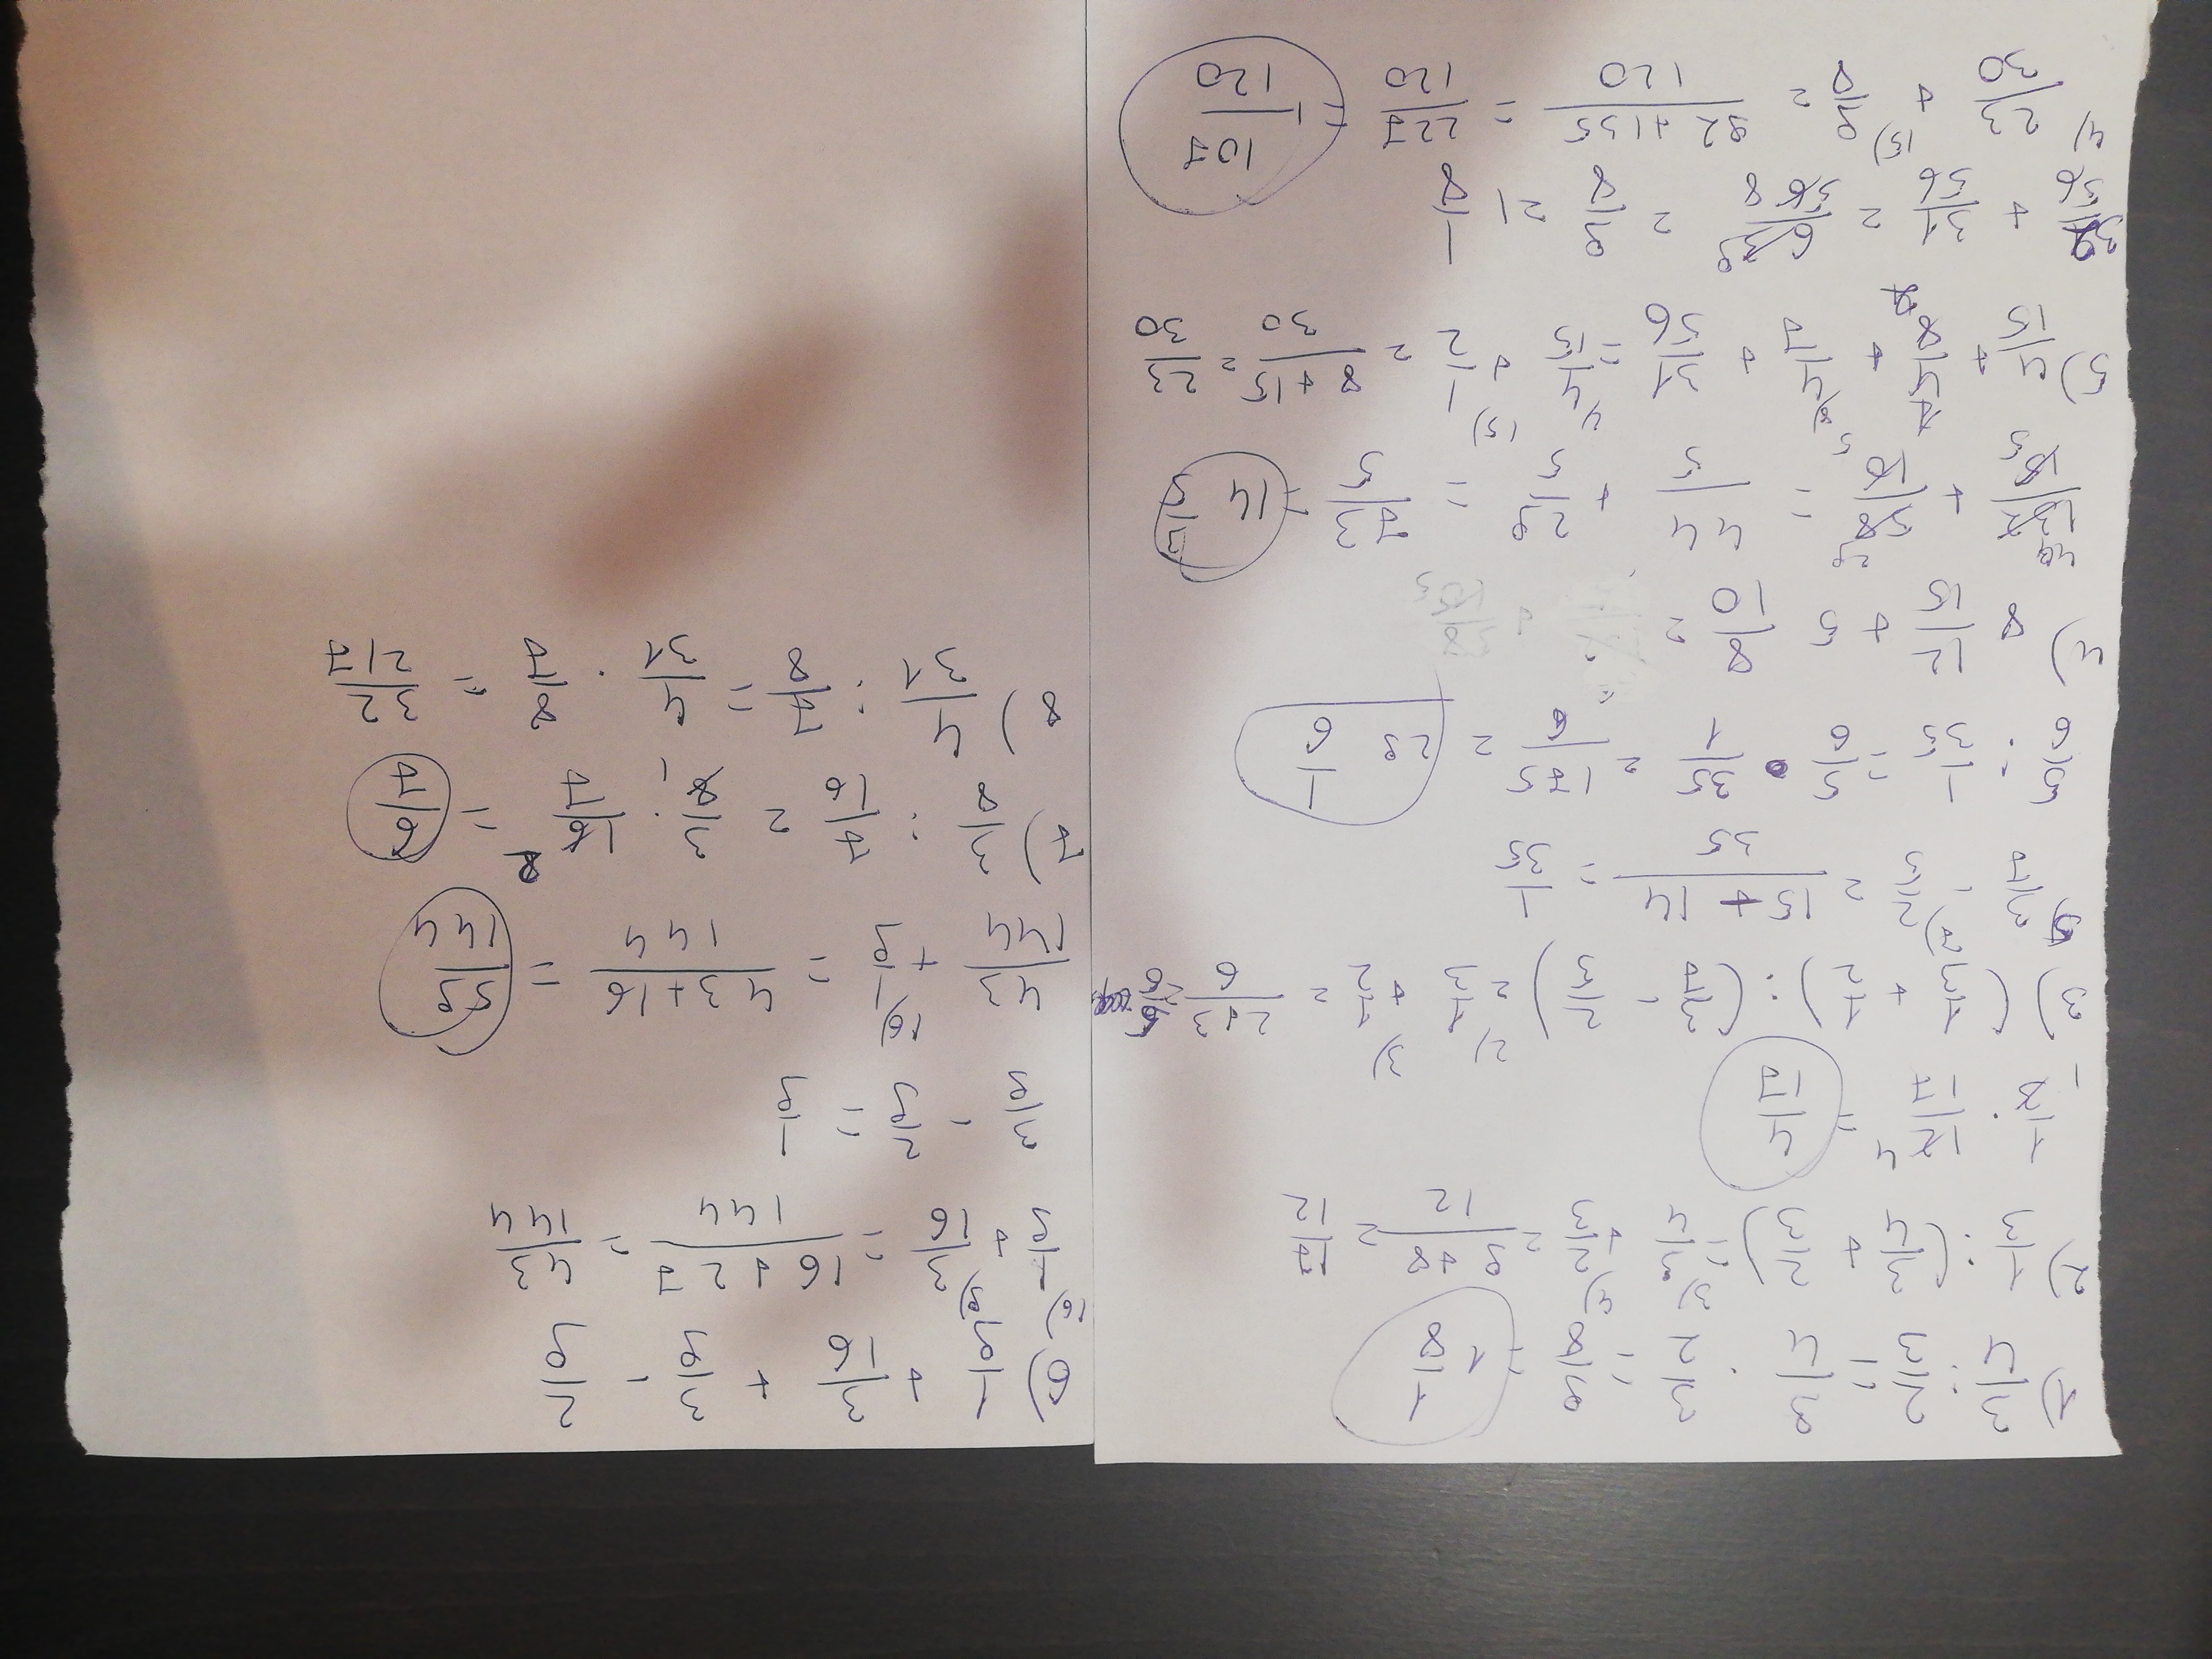 1) 3/4 : 2/3 = 3/4 · 3/2 = 9/8 = 1 1/8
2) 1/3 : (3/4 + 2/3) = 3) 3/4 + 4) 2/3 = 9+8/12 = 17/12
1/3 · 12/17 = 4/17
3) (1/3 + 1/2) : (3/7 - 2/5) = 2) 1/3 + 3) 1/2 = 2+3/6 = 5/6
5) 3/7 - 7) 2/5 = 15+14/35 = 1/35
5/6 : 1/35 = 5/6 · 35/1 = 175/6 = 29 1/6
4) 8 12/15 + 5 8/10 =
132/15 + 58/10 = 44/5 + 29/5 = 73/5 = 14 3/5
5) 4/15 + 4/7 + 31/56 = 4/15 + 15) 1/2 = 8+15/30 = 23/30
32/56 + 31/56 = 63/56 = 9/8 = 1 1/8
4) 23/30 + 15) 9/8 = 92+135/120 = 227/120 = 1 107/120
6) 1/9 + 3/16 + 3/9 - 2/9
16) 1/9 + 9) 3/16 = 16+27/144 = 43/144
3/9 - 2/9 = 1/9
43/144 + 16) 1/9 = 43+16/144 = 59/144
7) 3/8 : 7/16 = 3/8 · 16/7 = 6/7
8) 4/31 : 7/8 = 4/31 · 8/7 = 32/217